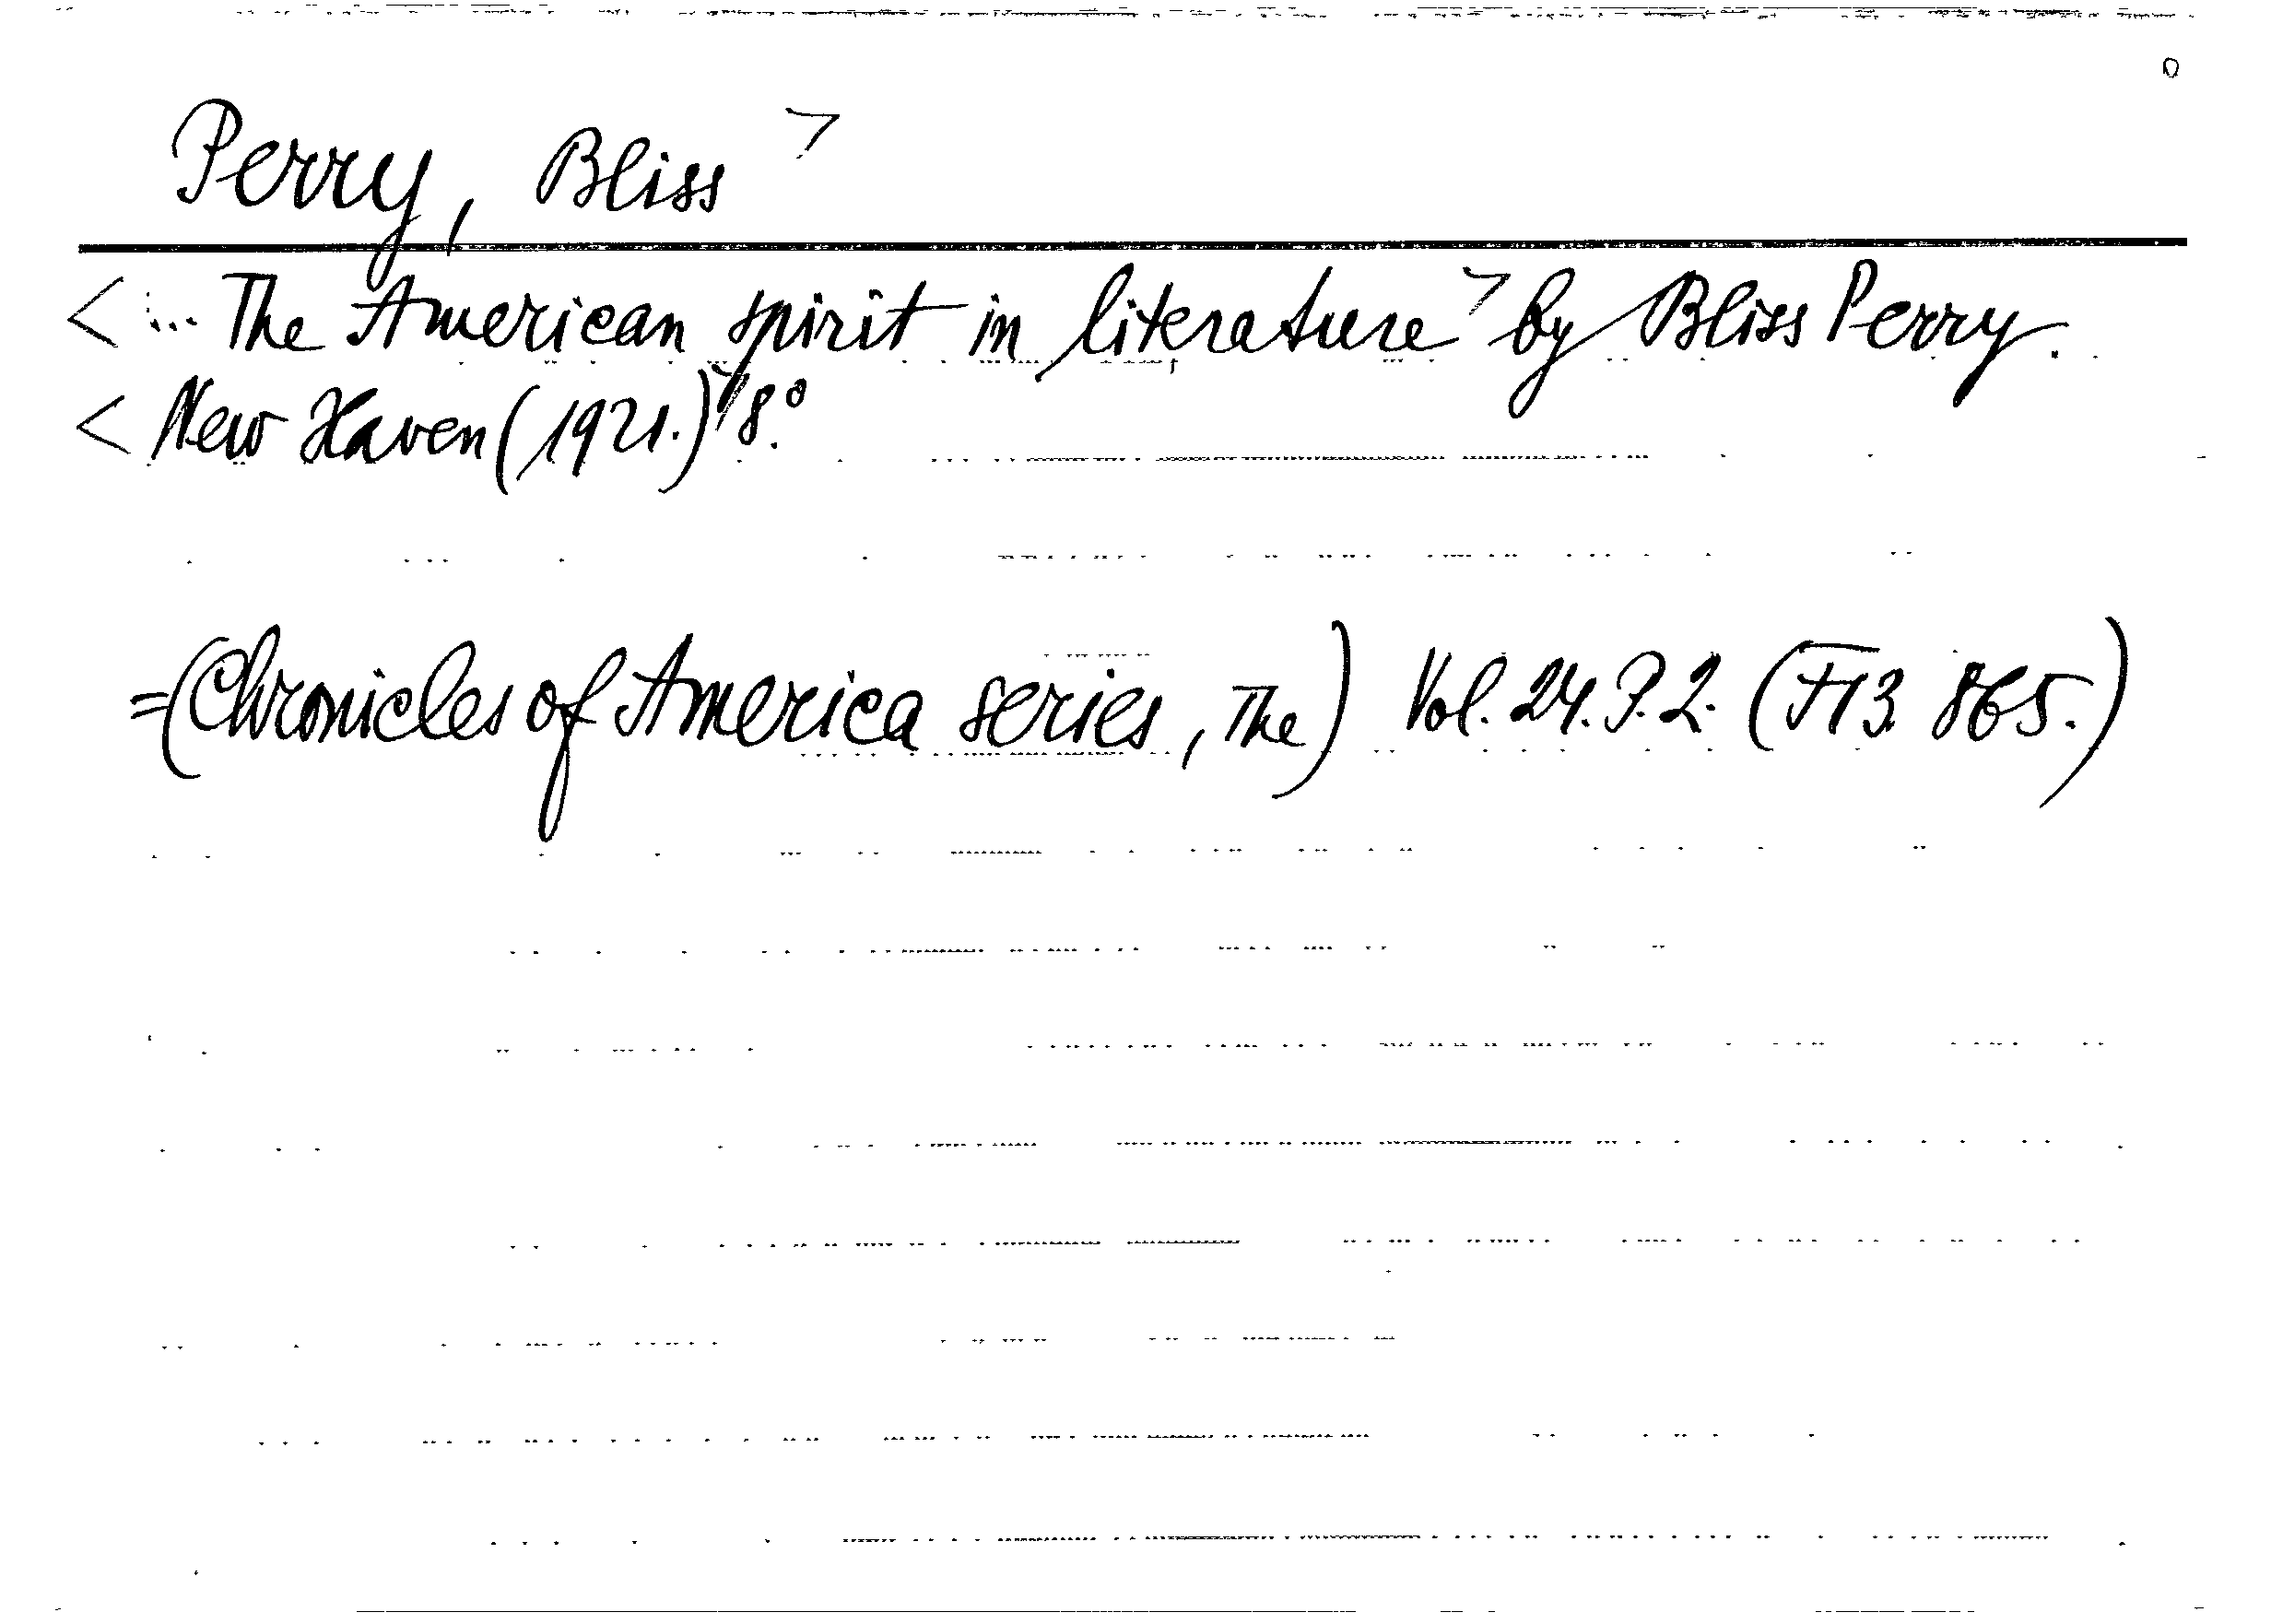 Perry, Bliss >
< ... The American spirit in literature > by Bliss Perry.
< New Haven (1921.) > 8.°
= (Chronicles of America series, The) Vol. 24. P. 2. ( 865.)